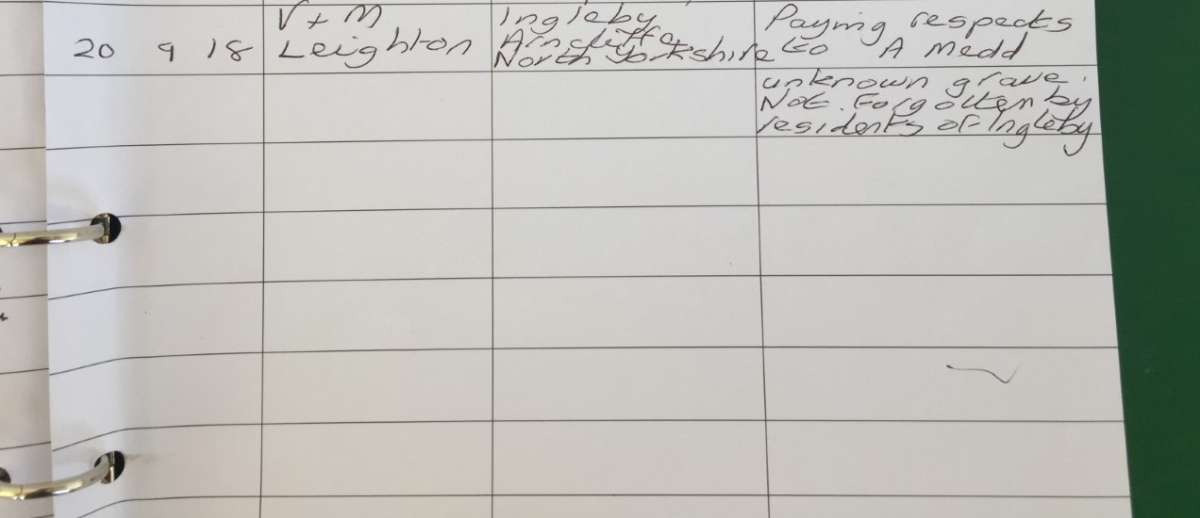 20 9 18
V + M
Leighton
Ingleby
Arncliffe
North Yorkshire
Paying respects
to A Medd
unknown grave.
Not Forgotten by
residents of Ingleby